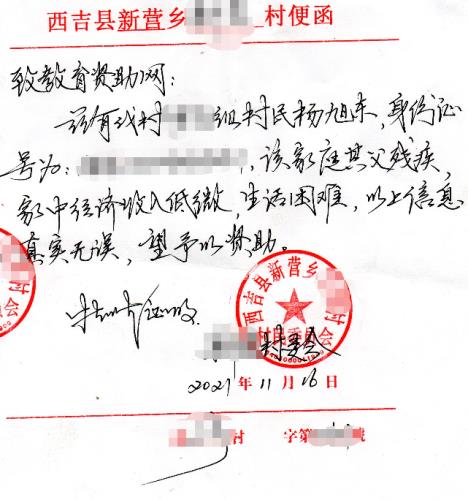 西吉县新营乡 村便函
致教育资助网：
兹有我村 组村民杨旭东，身份证
号为： ，该家庭其父残疾，
家中经济收入低微，生活困难，以上信息
真实无误，望予以资助。
特此证明
西吉县新营乡 村
村民委员会
村委会
2021年11月16日
村 字第 号